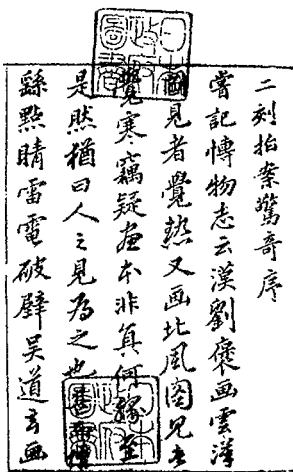 二刻拍案驚奇序
嘗記博物志云漢劉褒画雲漢
圖見者覺熱又画北風圖見者
覺寒竊疑画本非真何緣至
是然猶曰人之見為之也
繇點睛雷電破壁吴道玄画